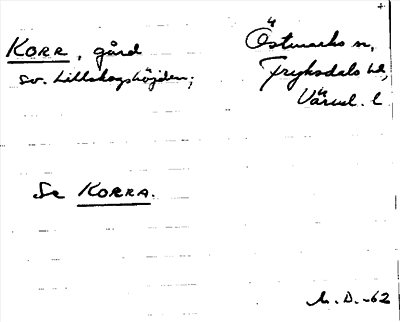 KORR, gård
sv. Lillskogshöjden;
Östmarks sn,
Fryksdals hd,
Värml. l.
Se KORRA.
M. D. -62